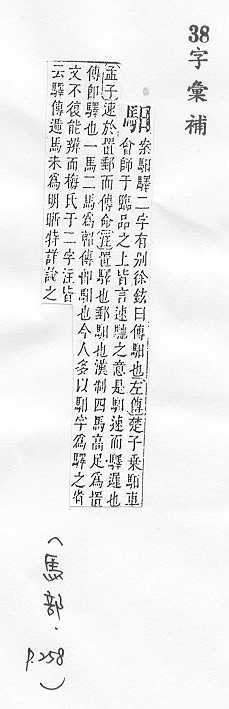 38字彙補
馹
案馹驛二字有別徐鉉曰傳馹也左傳楚子乘馹車
會師于臨品之上皆言速馳之意是馹速而驛遲也
孟子速於置郵而傳命註置驛也郵馹也漢制四馬高足為置
傳即驛也一馬二馬為軺傳即馹也今人多以馹字為驛之省
文不復能辨而梅氏于二字注皆
云驛傳遞馬未為明晰特詳說之
(馬部.
p.258)